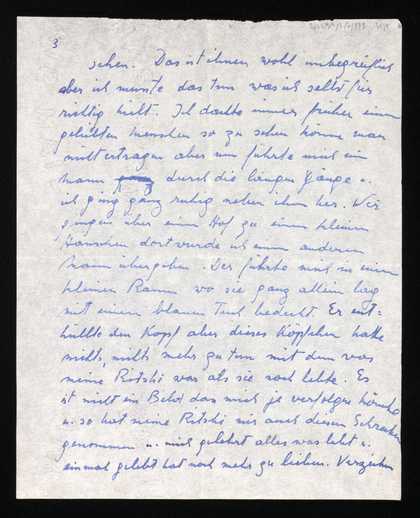 3
sehen. Das ist ihnen wohl unbegreiflich
aber ich musste das tun was ich selbst für
richtig hielt. Ich dachte immer früher einen
geliebten Menschen so zu sehen könne man
nicht ertragen aber nun führte mich ein
Mann durch die langen Gänge u.
ich ging ganz ruhig neben ihm her. Wir
gingen über einen Hof zu einem kleinen
Häuschen dort wurde ich einem anderen
Mann übergeben. Der führte mich in einen
kleinen Raum wo sie ganz allein lag
mit einem blauen Tuch bedeckt. Er ent=
hüllte den Kopf aber dieses Köpfchen hatte
nichts, nichts mehr zu tun mit dem was
meine Ritschi war als sie noch lebte. Es
ist nicht ein Bild das mich je verfolgen könnte
u. so hat meine Ritschi mir auch diesen Schrecken
genommen u. mich gelehrt alles was lebt u.
einmal gelebt hat noch mehr zu lieben. Verzeihen